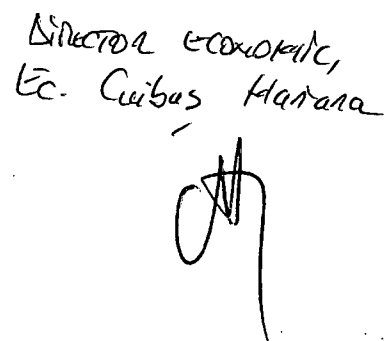 Director economic,
Ec. Cuibuș Mariana